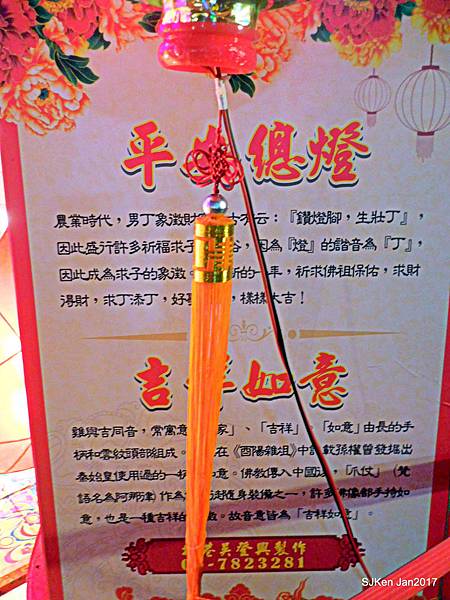 平 總燈
農業時代，男丁象徵財 古云：『鑽燈腳，生壯丁』，
因此盛行許多祈福求子 俗，因為『燈』的諧音為『丁』，
因此成為求子的象徵。 新的一年，祈求佛祖保佑，求財
得財，求丁添丁，好 ，樣樣大吉！
吉 如意
雞與吉同音，常寓意 家」、「吉祥」。「如意」由長的手
柄和雲紋頭部組成。 在《酉陽雜俎》中 載孫權曾發掘出
秦始皇使用過的一柄 如意。佛教傳入中國 ，「爪仗」（梵
語名為阿那津）作為 徒隨身裝備之一，許多佛像都手持如
意，也是一種吉祥的 徵。故音意皆為「吉祥如意」。
港吳登興製作
0 -7823281
SJKen Jan2017